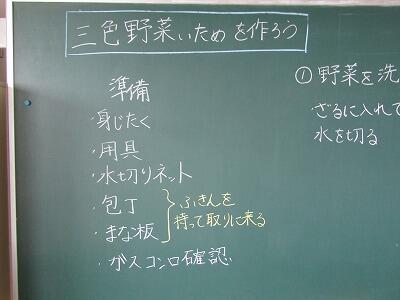 三色野菜いためを作ろう
準備
・身じたく
・用具
・水切りネット
・包丁
・まな板
ふきんを
持って取りに来る
・ガスコンロ確認
①野菜を洗
ざるに入れて
水を切る